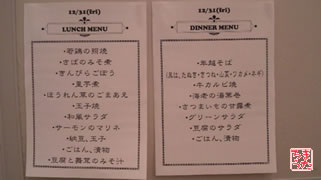 12/31(fri)
LUNCH MENU
・若鶏の照焼
・さばのみそ煮
・きんぴらごぼう
・里芋煮
・ほうれん草のごまあえ
・玉子焼
・和風サラダ
・サーモンのマリネ
・納豆、玉子
・ごはん、漬物
・豆腐と舞茸のみそ汁
12/31(fri)
DINNER MENU
・年越そば
(具は、たぬき・きつね・山菜・ワカメ・ネギ)
・牛カルビ焼
・海老の湯葉巻
・さつまいもの甘露煮
・グリーンサラダ
・豆腐のサラダ
・ごはん、漬物